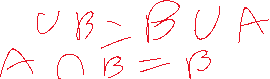 ∪ B = B ∪ A
A ∩ B = B